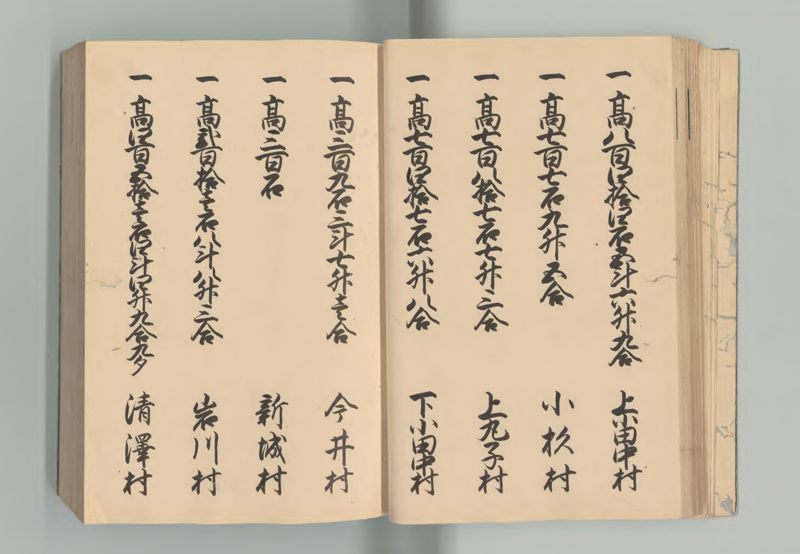 一 髙八百四拾四石五斗六升九合 上小田中村
一 髙七百七石九升五合 小杦村
一 髙七百八拾七石七升三合 上丸子村
一 髙七百四拾七石六升八合 下小田中村
一 髙三百九石三斗七升壱合 今井村
一 髙三百石 新城村
一 髙弐百拾壱石八斗八升三合 岩川村
一 髙四百五拾壱石四斗四升九合九夕 清澤村